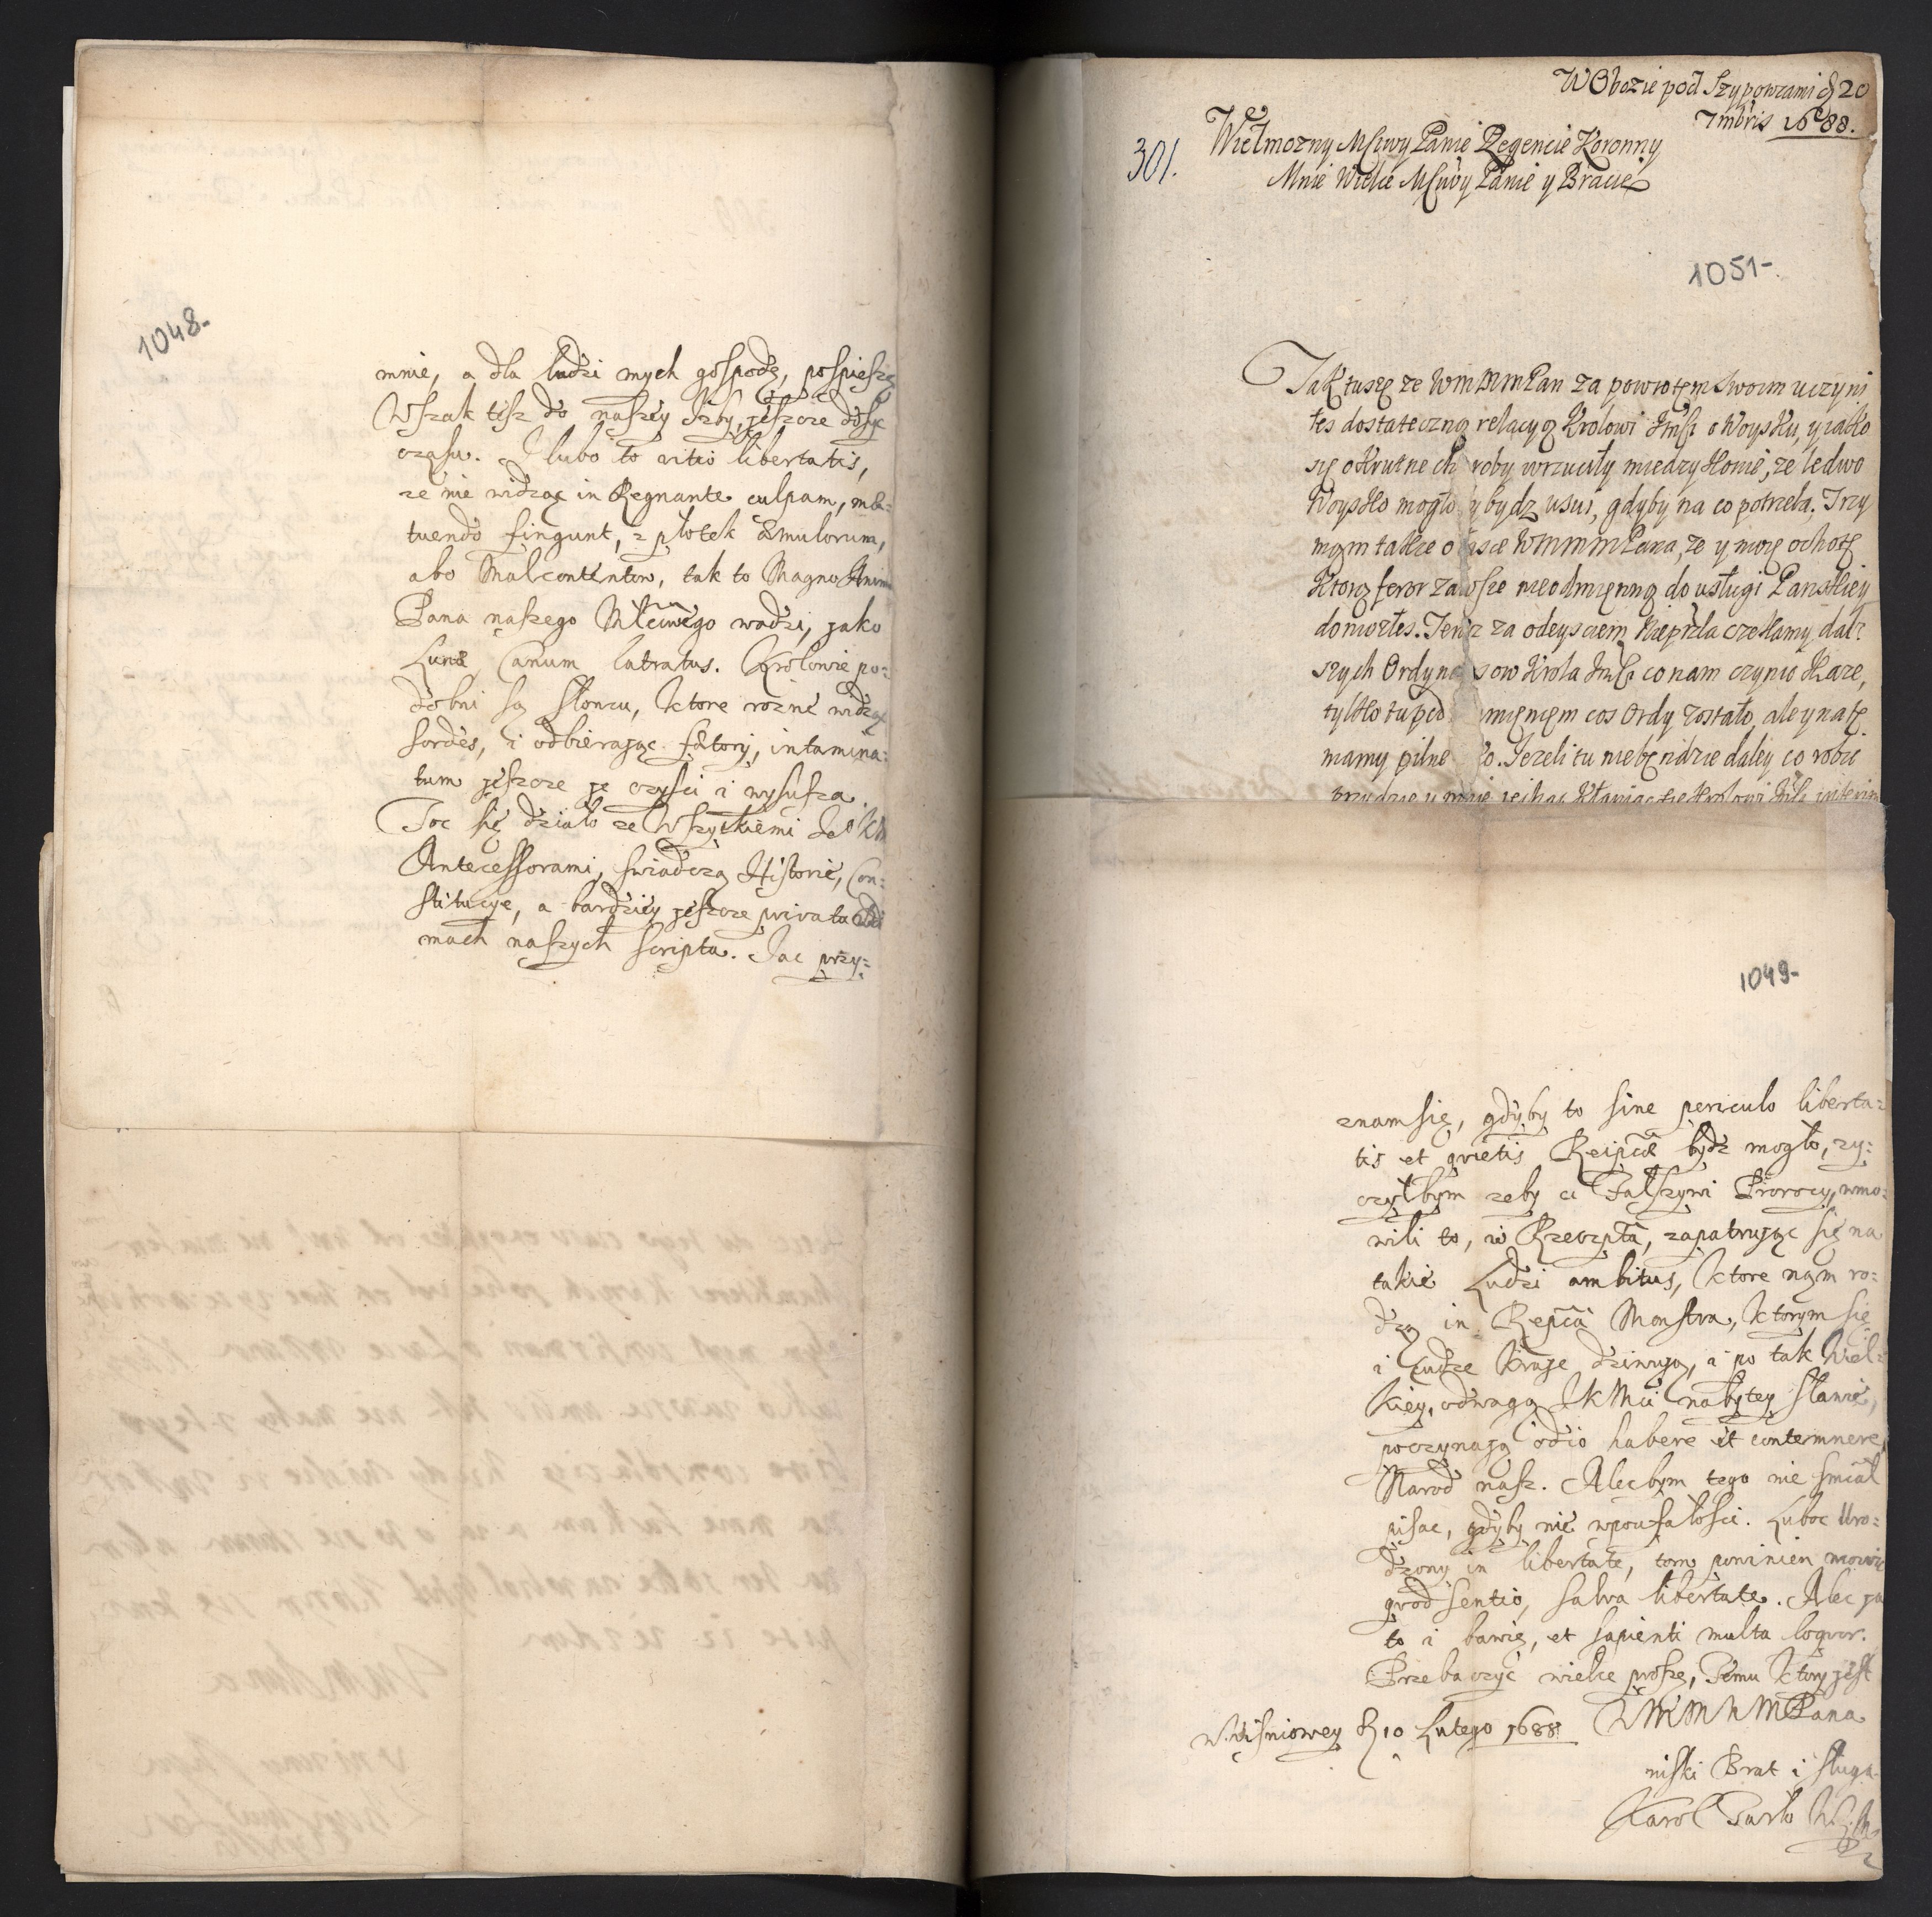 1048-
mnie, a dla ludzi mych gospodę, pospieszę
Wszak tesz do naszey Izby, jeszcze dosyc
czasu. I lubo to vitio libertatis,
ze nie widząc in Regnante culpam, me-
tuendo fingunt, z plotek Æmulorum,
abo Malcontentow, tak to Magno Anim
Pana naszego Młciwego wadzi, jako
Lunæ Canum latratus. Krolowie po-
dobni są słoncu, ktore rozne widząc
sordes, i odbierając fætory, intamina-
tum jeszcze je czysci i wysusza.
Toc się działo ze Wszytkiemi JeoKM
Antecessorami, swiadczą Historie, Con-
stitucye, a bardziey jeszcze privata
mach naszych scripta. Jac przy-
W Obozie pod Szypowcami d 20
7mbris 1688.
301.
Wielmozny Mciwy Panie Regencie Koronny
Mnie Wielce Mciwy Panie y Bracie
1051-
Tak tuszę ze WMMMPan za powrotem swoim uczyni
łes dostateczną relacyą Krolowi Jmsci o Woysku, y iako
się okrutne ch roby wrzuciły miedzy konie, ze ledwo
Woysko mogło by bydz usui, gdyby na co potrzeba. Trzy
mam takze o WMMMPana, ze y moię ochotę
ktorą feror zawsze nieodmięnną do usługi Panskiey
doniozłes. Teraz za odeysciem Nieprzla czekamy dal-
szych Ordynansow Krola Jmsci co nam czynic kaze,
tylko tu pod mięniem cos Ordy zostało, ale y na tę
mamy pilne ko. Jezeli tu nie bęndzie daley co robic
przydzie y mnie iechac kłaniac się Krolowi Jmsci interim
1049-
znam się, gdyby to sine periculo liberta-
tis et qvietis Reipcæ bydz mogło, zy-
czyłbym zeby ci Fałszywi Prorocy, wmo-
wili to, w Rzeczpltą, zapatrując się na
takie Ludzi ambitus, ktore nam ro-
dzą in Repca Monstra, ktorym się
i Cudze Kraje dziwują, i po tak Wiel-
kiey, odwagą JKMci nabytey sławie,
poczynają odio habere et contemnere
Narod nasz. Alecbym tego nie smiał
pisac, gdyby nie wpoufałosci. Luboc Uro-
dzony in libertate, tom powinien mowic
qvod sentio, salva libertate. Alec ja
to i bawię, et sapienti multa loqvor.
Przebaczyc wielce proszę, Temu ktory jest
WMMWMPana
W Wisniowey d 10 Lutego 1688
niski Brat i sługa
Karol Tarło